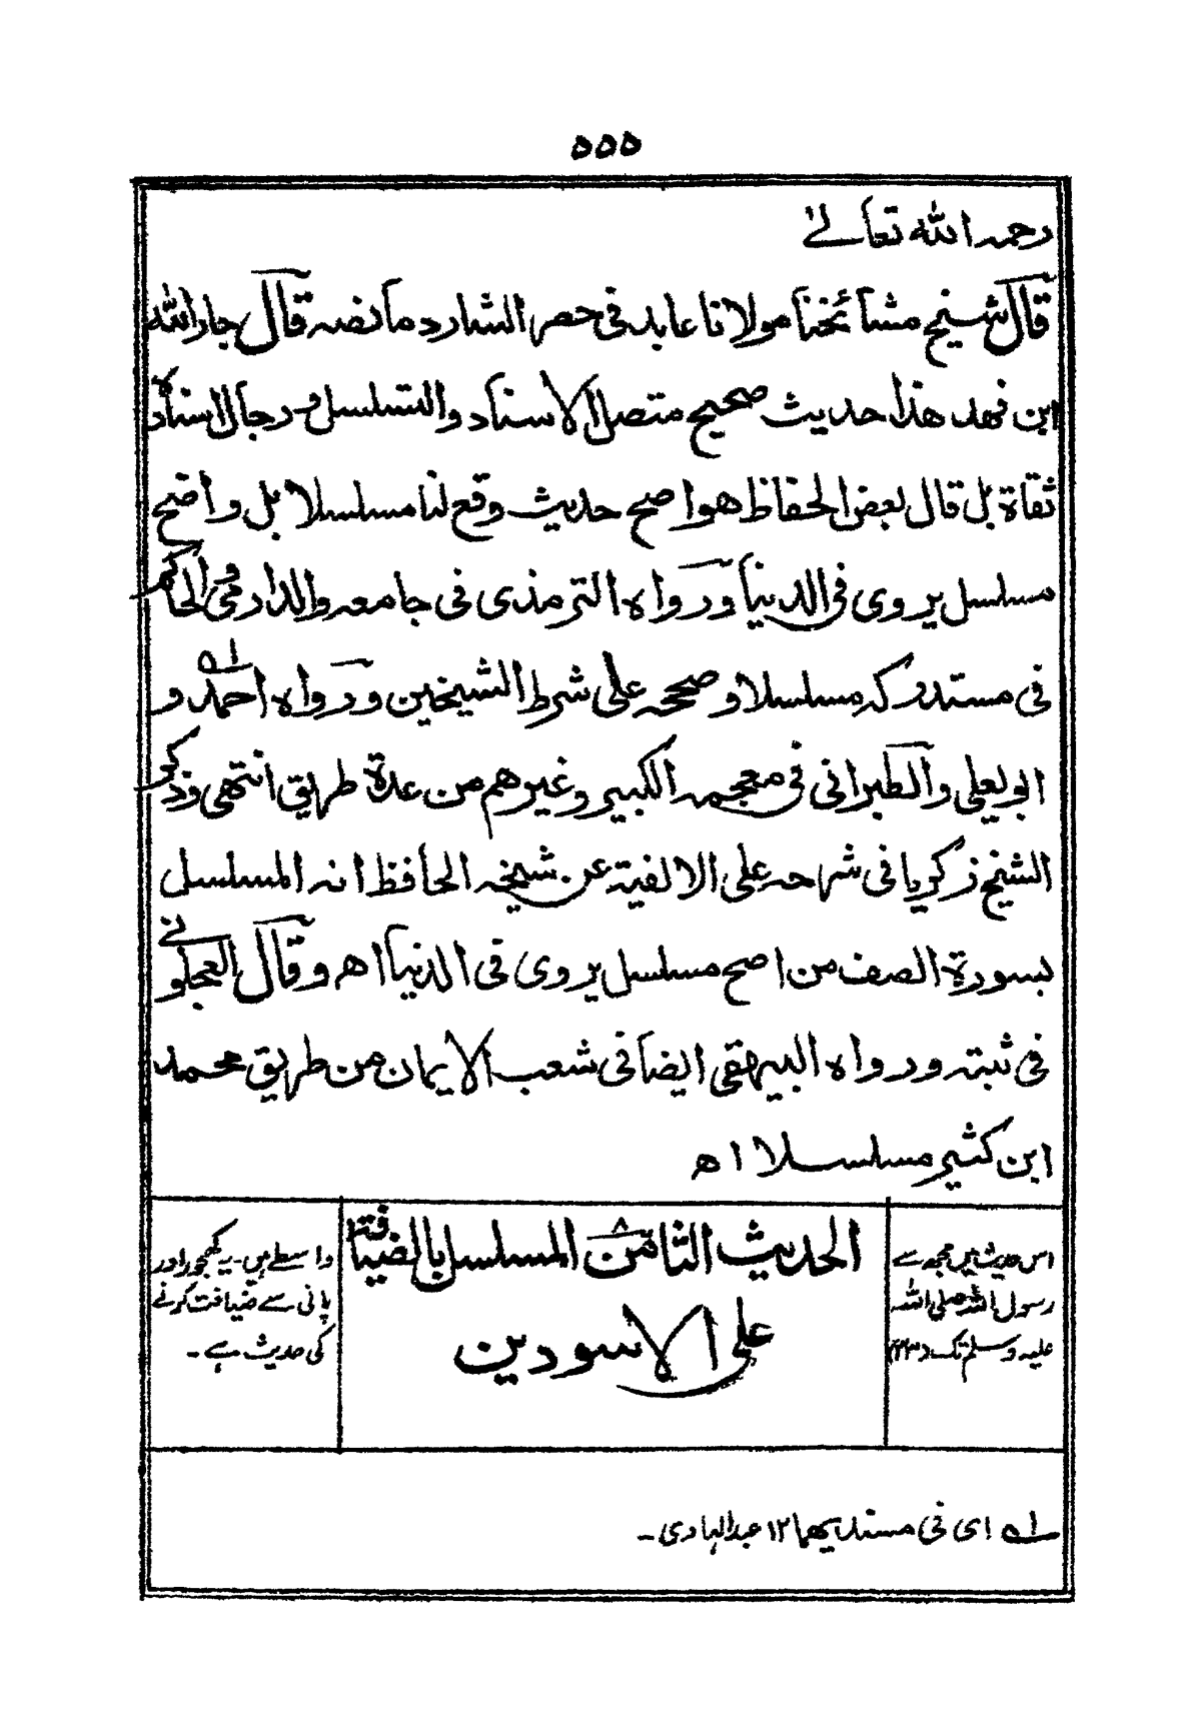 ۵۵۵
رحمہ اللہ تعالےٰ
قال شیخ مشائخنا مولانا عابد فی حصر الشارد ما نصہ قال جار اللہ
ابن فھد ھذا حدیث صحیح متصل الاسناد والتسلسل ورجال اسنادہ
ثقاۃ بل قال بعض الحفاظ ھو اصح حدیث وقع لنا مسلسلا بل واضح
مسلسل یروی فی الدنیا ورواہ الترمذی فی جامعہ والدارمی والحاکم
فی مستدرکہ مسلسلا وصححہ علی شرط الشیخین ورواہ احمد و
ابو یعلی والطبرانی فی معجمہ الکبیر وغیرھم من عدۃ طریق انتھی وذکر
الشیخ زکریا فی شرحہ علی الالفیۃ عن شیخہ الحافظ انہ المسلسل
بسورۃ الصف من اصح مسلسل یروی فی الدنیا اھ وقال العجلونے
فی ثبتہ ورواہ البیہقی ایضا فی شعب الایمان من طریق محمد
ابن کثیر مسلسلا اھ
اس حدیث میں مجھ سے
رسول اللہ صلی اللہ
علیہ وسلم تک (۲۳)
الحدیث الثامن المسلسل بالضیافۃ
علی الاسودین
واسطے ہیں۔ یہ کھجور اور
پانی سے ضیافت کرنے
کی حدیث ہے۔
۱ه ای فی مسندیھما ۱۲ عبدالہادی۔